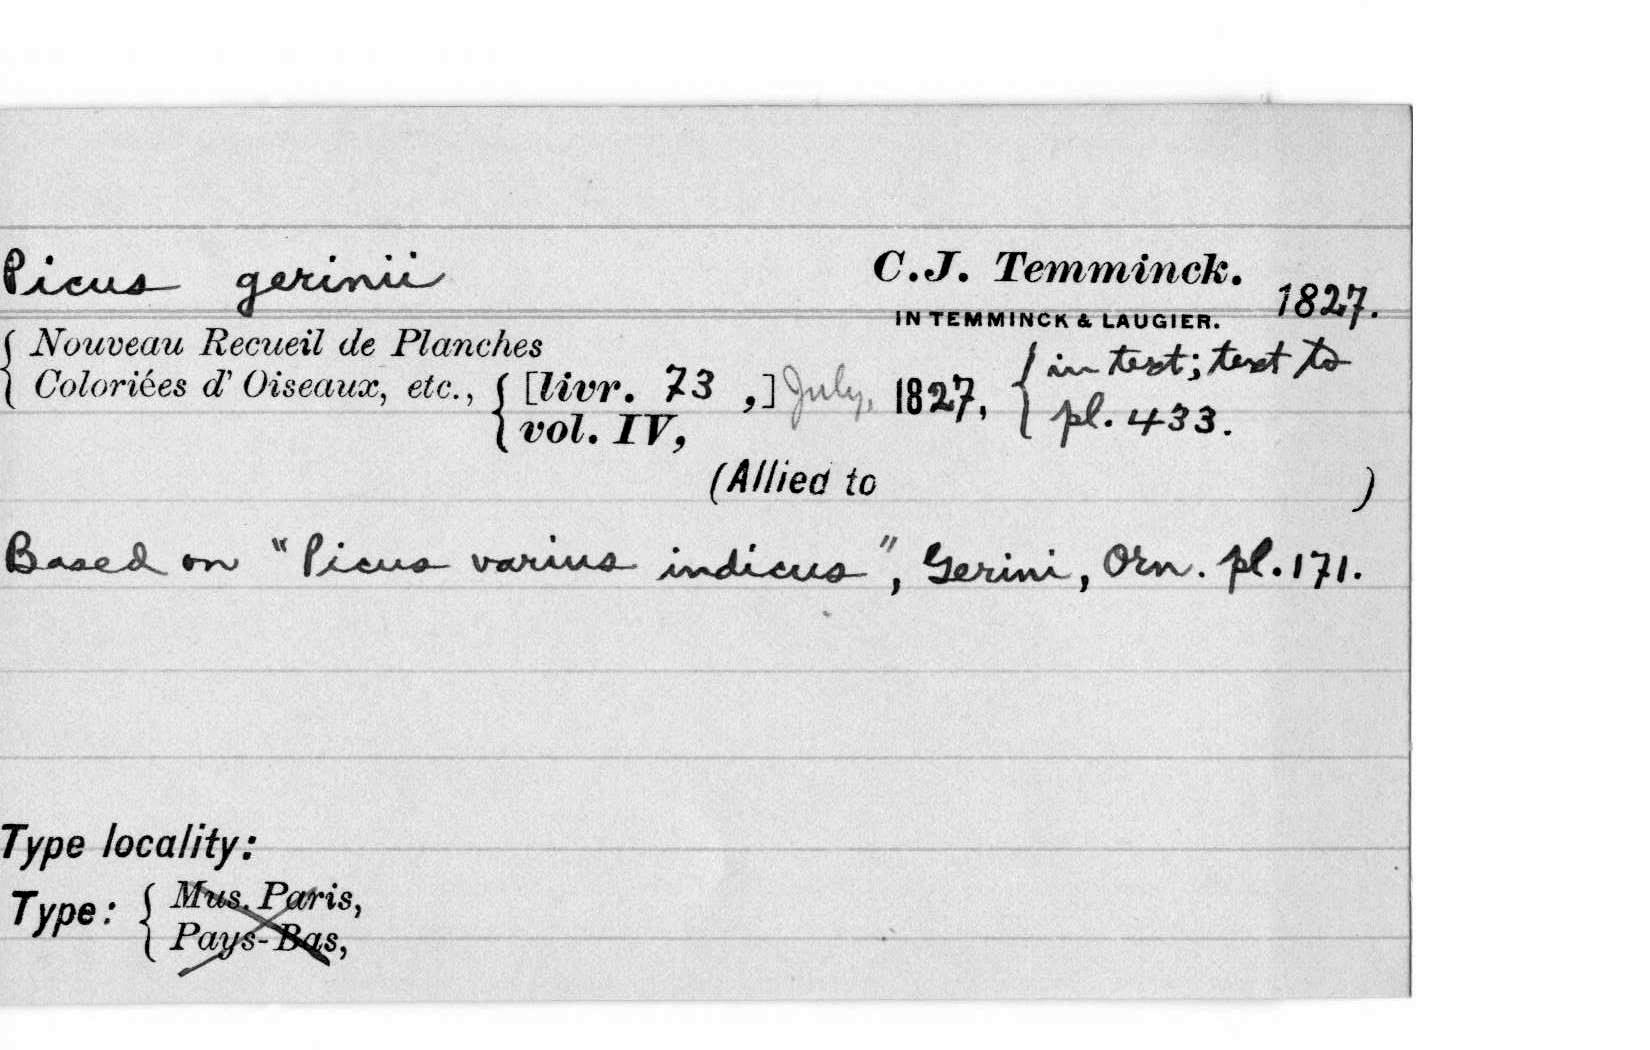 Picus gerinii C.J. Temminck.
IN TEMMINCK & LAUGIER. 1827.
{ Nouveau Recueil de Planches { in text; text to
Coloriées d'Oiseaux, etc., { [livr. 73 ,] July, 1827, pl. 433.
vol. IV,
(Allied to )
Based on "Picus varius indicus", Gerini, Orn. pl. 171.
Type locality:
Type: { Mus. Paris,
Pays-Bas,